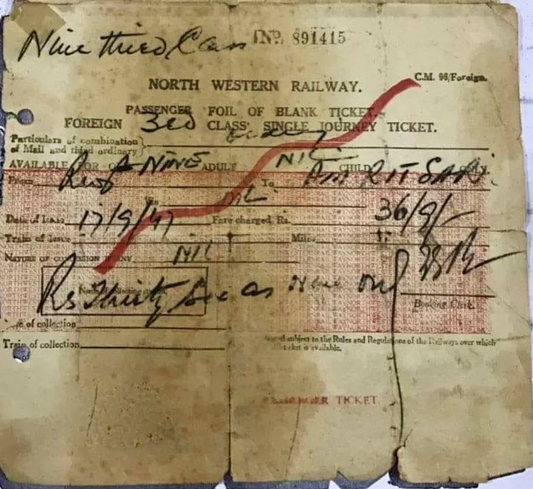 Nine third Class No. 891415
C.M. 90/Foreign.
NORTH WESTERN RAILWAY.
PASSENGER FOIL OF BLANK TICKET.
FOREIGN 3rd CLASS SINGLE JOURNEY TICKET.
Particulars of combination
of Mail and third ordinary
AVAILABLE FOR NINE ADULT NIL CHILD
From To AMRITSAR.
NIL
Date of Issue 17/9/47 Fare charged Rs. 36/9/-
Train of Issue Miles
NATURE OF NIL
Rs Thirty Six as Nine only
Booking Clerk.
of collection
Train of collection
subject to the Rules and Regulations of the Railways over which
ticket is available.
PASSENGER TICKET.